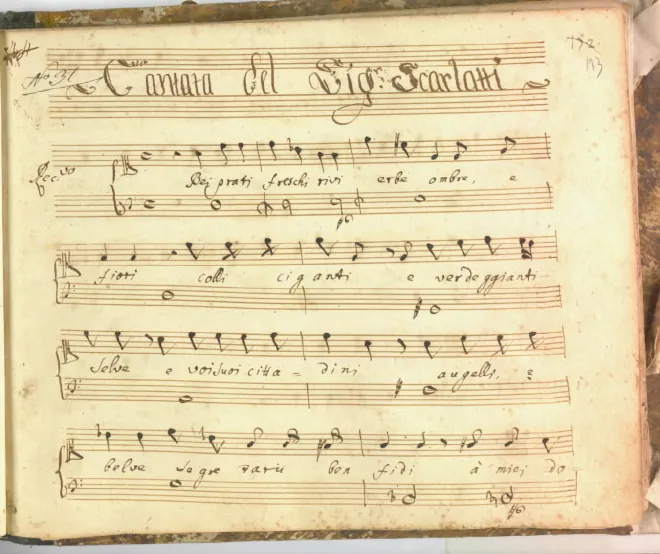 No. 31 Cantata del Sigr. Scarlatti
Rec.vo
Bei prati freschi rivi erbe ombre, e
fiori colli giganti e verdeggianti
selve e voi suoi citta = dini augelli, e
belve segretarii ben fidi à miei do